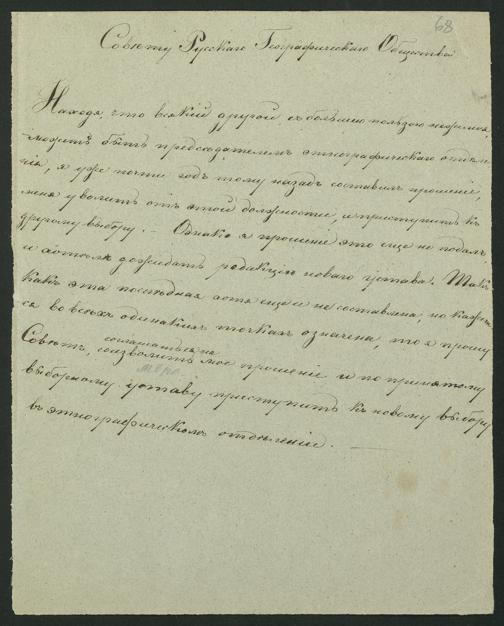 68
Совѣту Русскаго Географическаго Общества
Находя, что всякій другой съ большею пользою нежели я,
можетъ быть предсѣдателемъ этнографическаго отдѣле-
нія, я уже почти годъ тому назадъ составилъ прошеніе,
меня уволить отъ этой должности, и приступить къ
другому выбору. – Однако я прошеніе это еще не подалъ
и хотѣлъ дожидать редакцію новаго устава. Такъ
какъ эта послѣдная хотя еще и не составлена, но кажет-
ся во всѣхъ одинакихъ точкахъ означена, то я прошу
соглашаться на
Совѣтъ, соизволить мое прошеніе и по принятому
выборному уставу приступить къ новому выбору
въ этнографическомъ отдѣленіи.